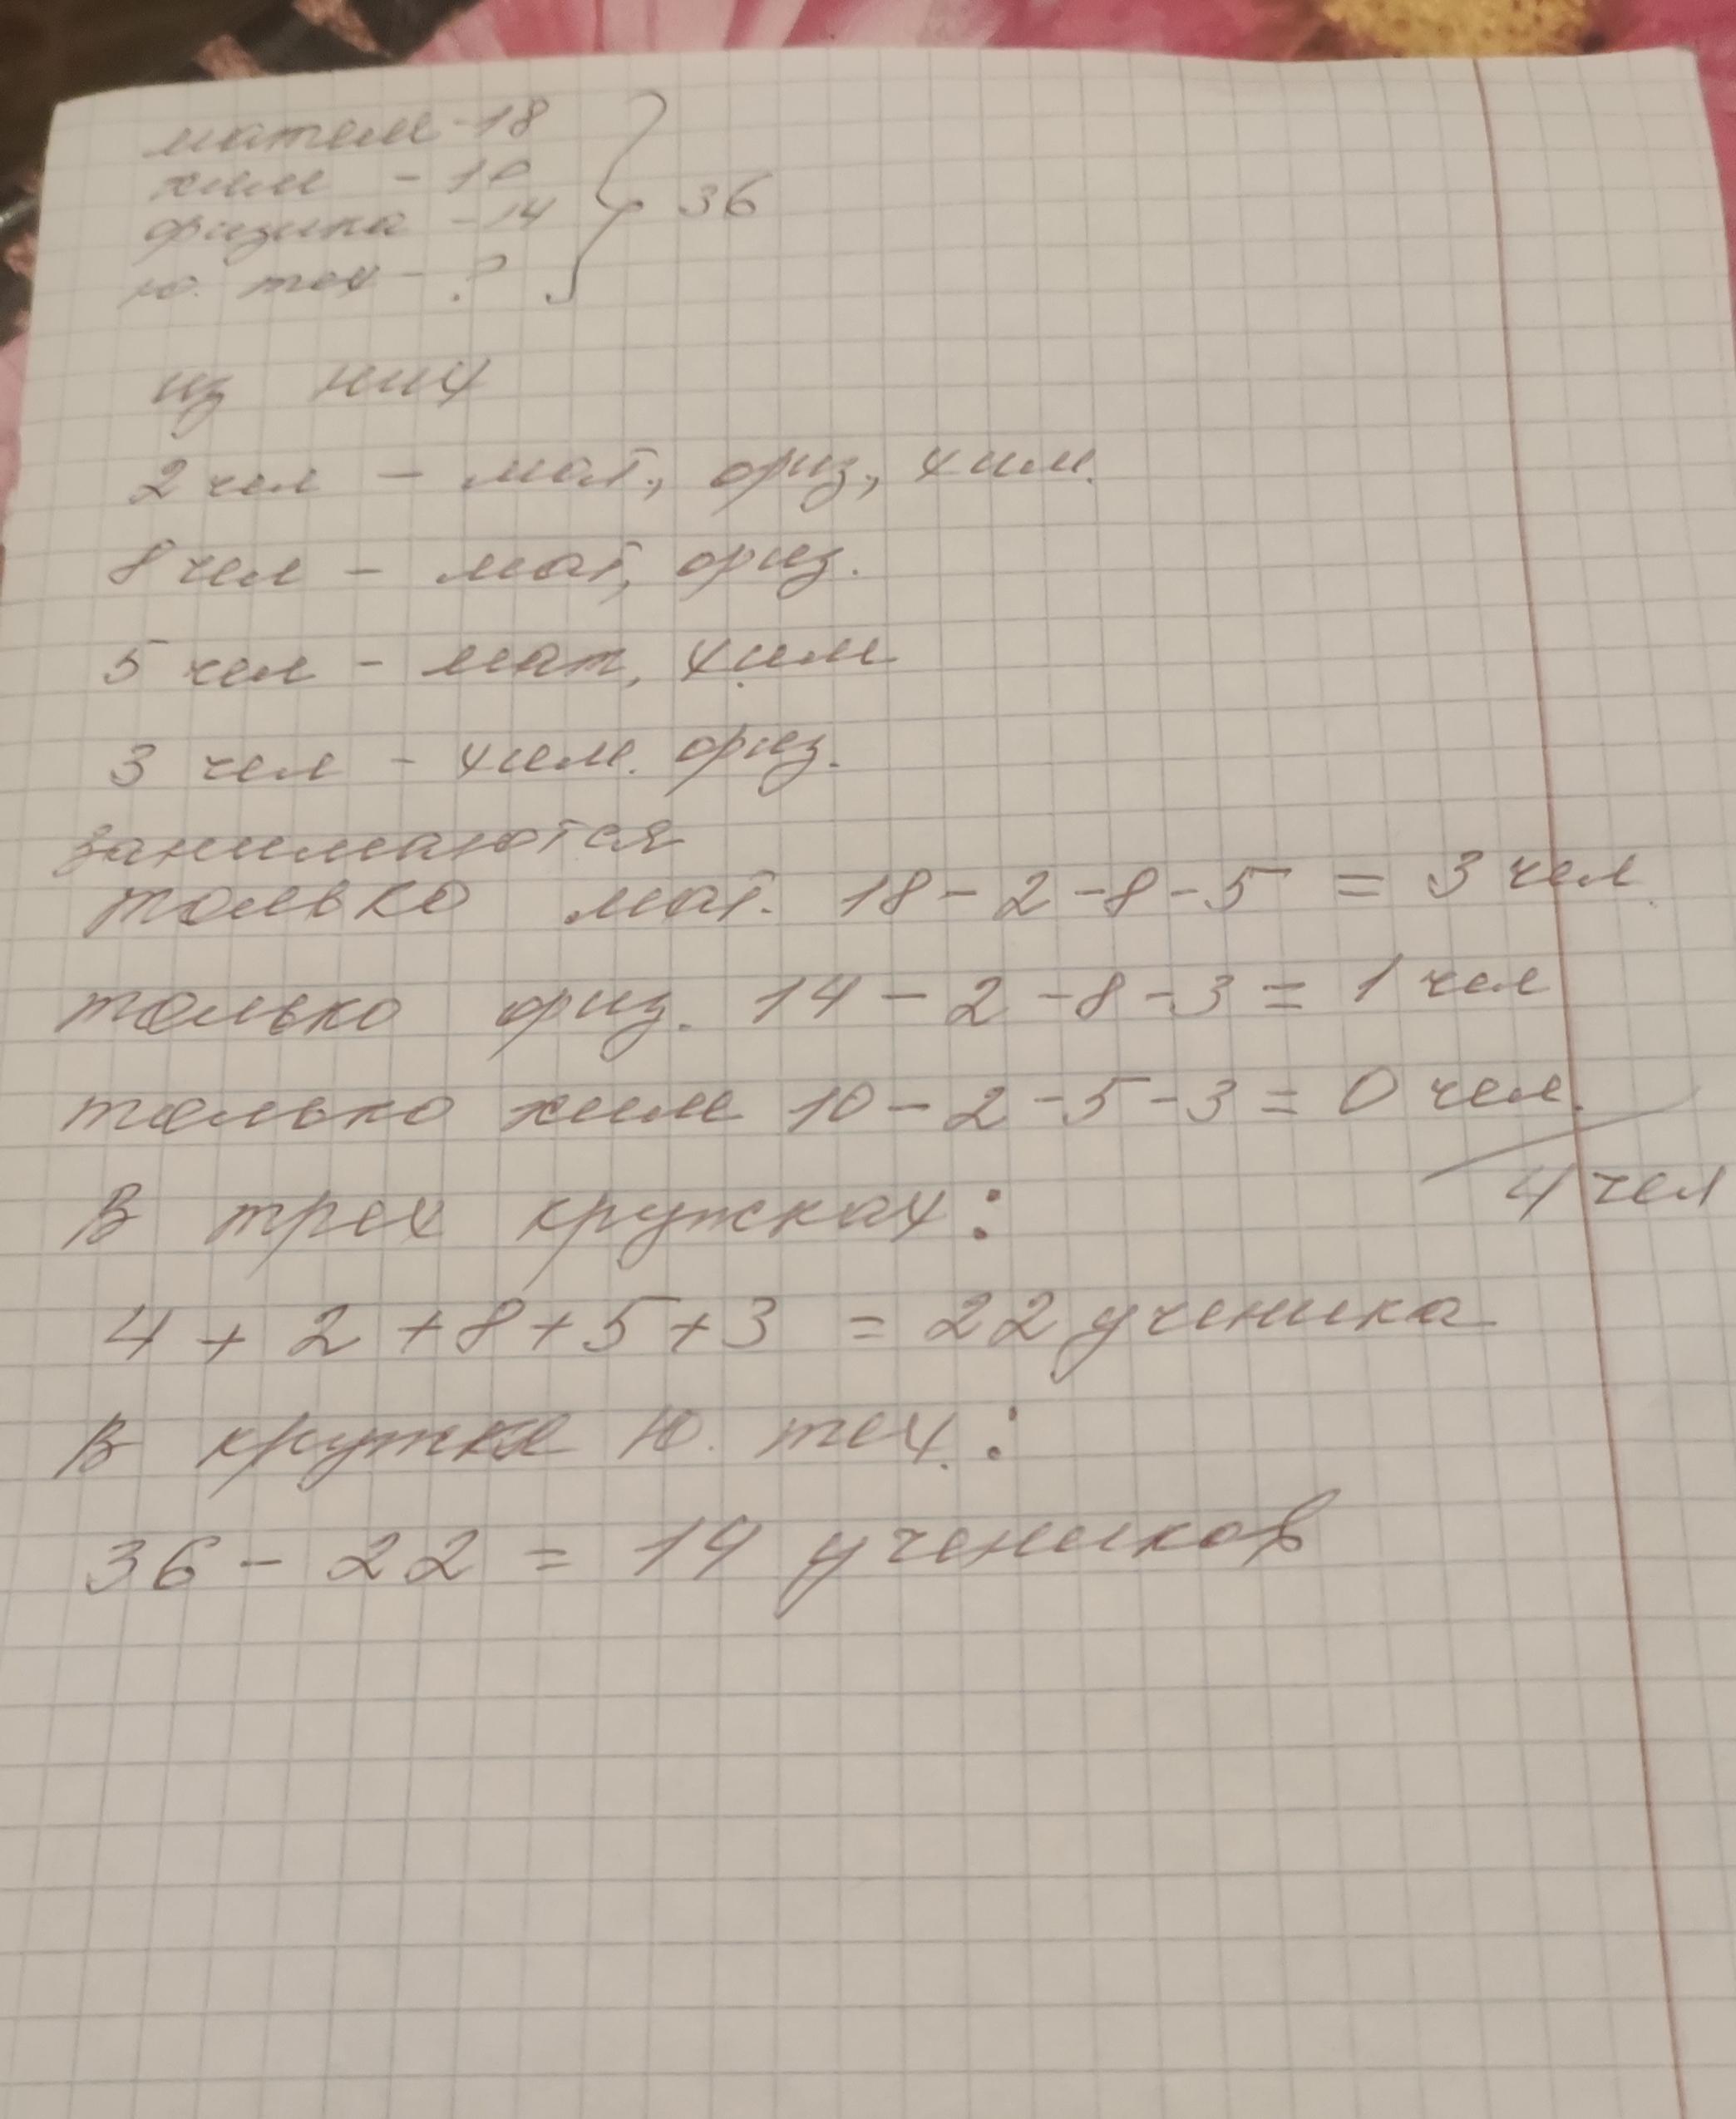 матем - 18
хим - 10
физика - 14
ю. тех - ?
36
из них
2 чел - мат., физ, хим.
8 чел - мат, физ.
5 чел - мат, хим
3 чел - хим. физ.
занимаются
только мат. 18 - 2 - 8 - 5 = 3 чел.
только физ. 14 - 2 - 8 - 3 = 1 чел
только хим 10 - 2 - 5 - 3 = 0 чел.
4 чел
В трех кружках:
4 + 2 + 8 + 5 + 3 = 22 ученика
В кружке Ю. тех.:
36 - 22 = 14 учеников